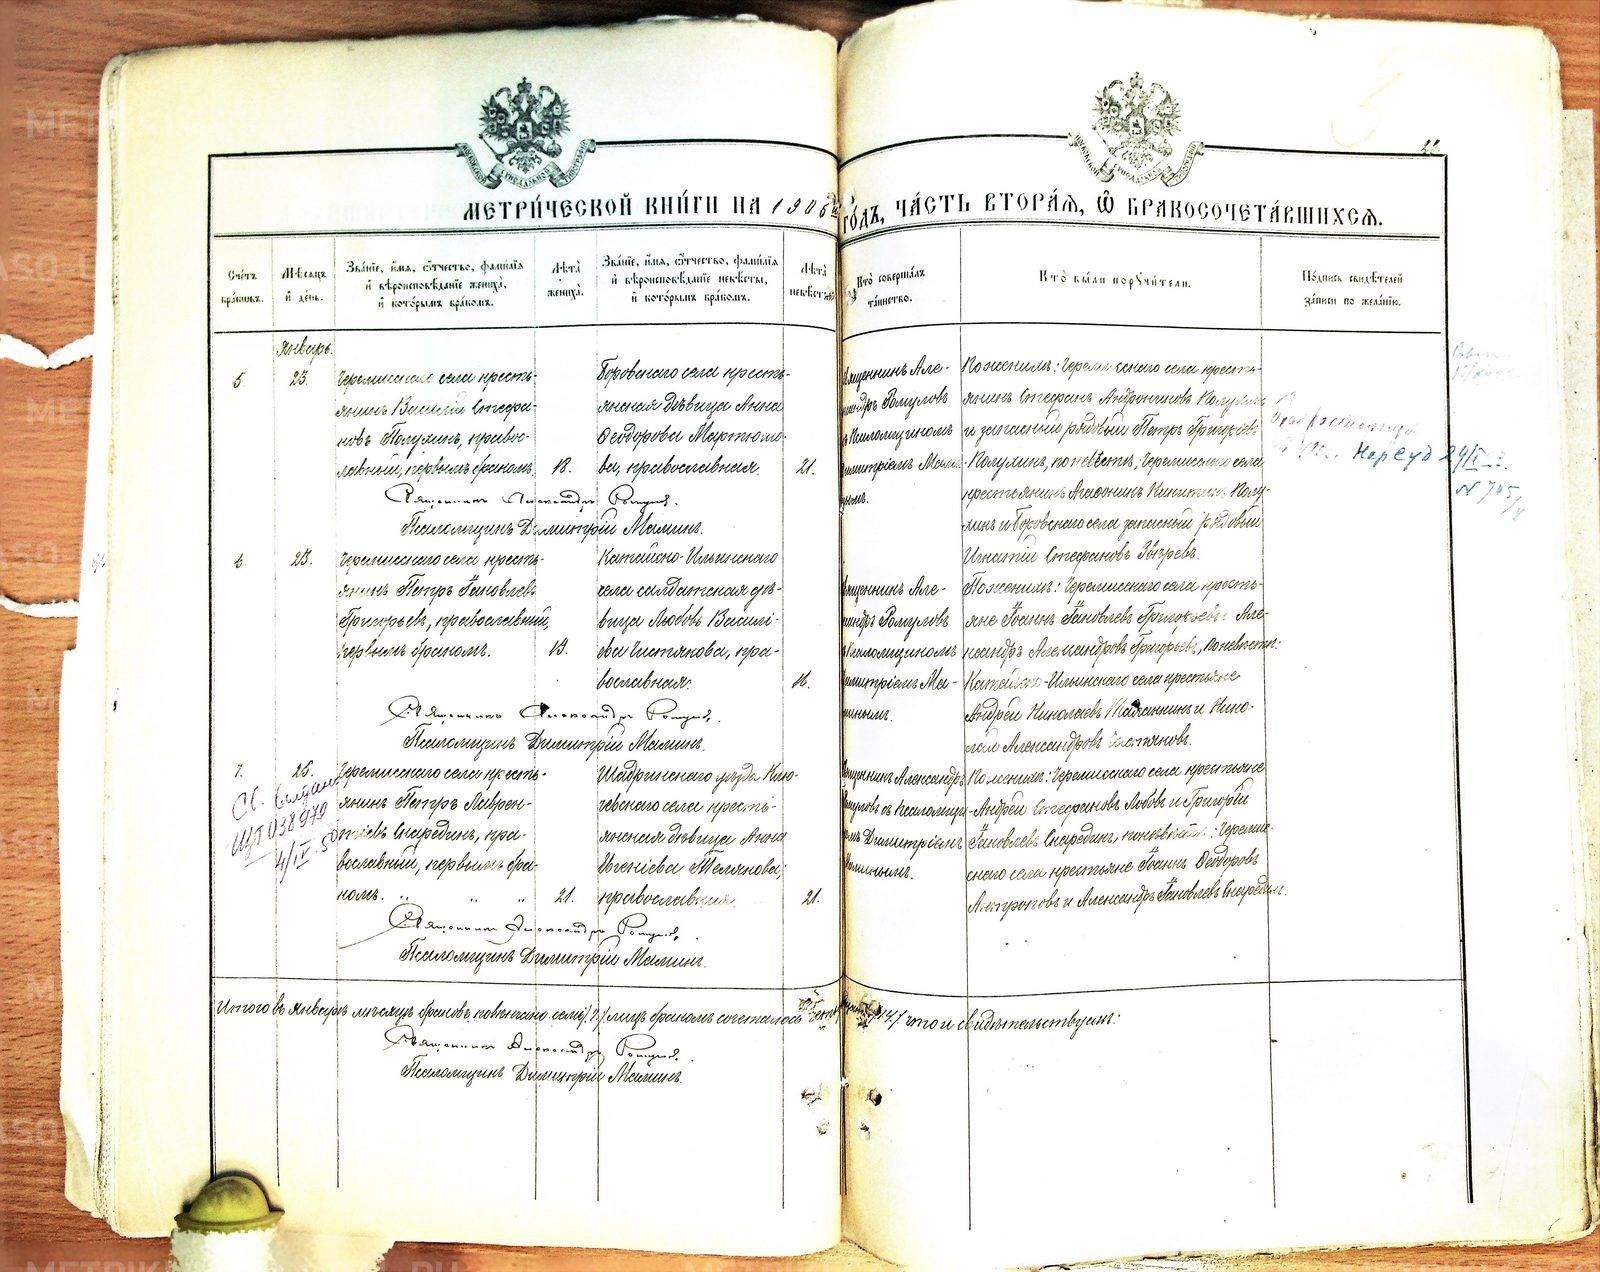 МЕТРИ́ЧЕСКОЙ КНИ́ГИ НА 1906 ГО́ДЪ, ЧА́СТЬ ВТОРА́Я, Ѽ БРАКОСОЧЕТА́ВШИХСЯ.
Сче́тъ
бра́ковъ.
Мѣ́сяцъ
и҆ де́нь.
Зва́нїе, и҆́мя, ѻ҆́тчество, фами́лїя
и҆ вѣроисповѣ́данїе жениха̀,
и҆ кото́рымъ бра́комъ.
Лѣ́та
жениха̀.
Зва́нїе, и҆́мя, ѻ҆́тчество, фами́лїя
и҆ вѣроисповѣ́данїе невѣ́сты,
и҆ кото́рымъ бра́комъ.
Лѣ́та
невѣ́сты.
Кто̀ соверша́лъ
та́инство.
Кто̀ бы́ли порꙋчи́тели.
По́дпись свидѣ́телей
за́писи по жела́нїю.
Январь.
5
23.
Черемисскаго села кресть-
янинъ Василій Стефа-
новъ Полухинъ, правос-
лавный, первымъ бракомъ.
18.
Боровскаго села кресть-
янская дѣвица Анна
Ѳеодорова
ва, православная.
21.
Священникъ Але-
ксандръ Ромуловъ
съ Псаломщикомъ
Димитріемъ Мами-
нымъ.
По женихѣ: Черемисскаго села кресть-
янинъ Стефанъ Андрониковъ Полухинъ
и запасный рядовый Петръ Григорьевъ
Полухинъ, по невѣстѣ, Черемисскаго села
крестьянинъ Никитинъ Полу-
хинъ и Боровскаго села запасный рядовый
Игнатій Стефановъ
Нарсуд 29/I
N 745/
Священникъ Александръ Ромуловъ.
Псаломщикъ Димитрій Маминъ.
6.
23.
Черемисскаго села кресть-
янинъ Петръ Іаковлевъ
Григорьевъ, православный,
первымъ бракомъ.
Катайско-Ильинскаго
села солдатская дѣ-
вица Любовь Василі-
ева Чистякова, пра-
вославная.
Священникъ Але-
ксандръ Ромуловъ
съ Псаломщикомъ
Димитріемъ Ма-
минымъ.
По женихѣ: Черемисскаго села кресть-
яне Іоаннъ Іаковлевъ Григорьевъ и Але-
ксандръ Александровъ Григорьевъ, по невѣстѣ:
Катайско-Ильинскаго села крестьяне
Андрей Николаевъ и Нико-
лай Александровъ Чистяковъ.
Священникъ Александръ Ромуловъ.
Псаломщикъ Димитрій Маминъ.
7.
26.
Св. выдано
038979
4/IV-50
Черемисскаго села кресть-
янинъ Петръ Лаврен-
тіевъ Снарединъ, пра-
вославный, первымъ бра-
комъ.
21.
Шадринскаго уѣзда Клю-
чевскаго села кресть-
янская дѣвица Анна
Евгеніева
православная.
21.
Священникъ Александръ
Ромуловъ съ Псаломщи-
комъ Димитріемъ
Маминымъ.
По женихѣ: Черемисскаго села крестьяне
Андрей Стефановъ и Григорій
Іаковлевъ Снарединъ, по невѣстѣ: Черемис-
скаго села крестьяне Іоаннъ Ѳеодоровъ
Антроповъ и Александръ Іаковлевъ Снарединъ.
Священникъ Александръ Ромуловъ.
Псаломщикъ Димитрій Маминъ.
Итого въ январѣ мѣсяцѣ браковъ повѣнчано семь /7/ лицъ бракомъ сочеталось /14/ что и свидѣтельствуемъ:
Священникъ Александръ Ромуловъ.
Псаломщикъ Димитрій Маминъ.